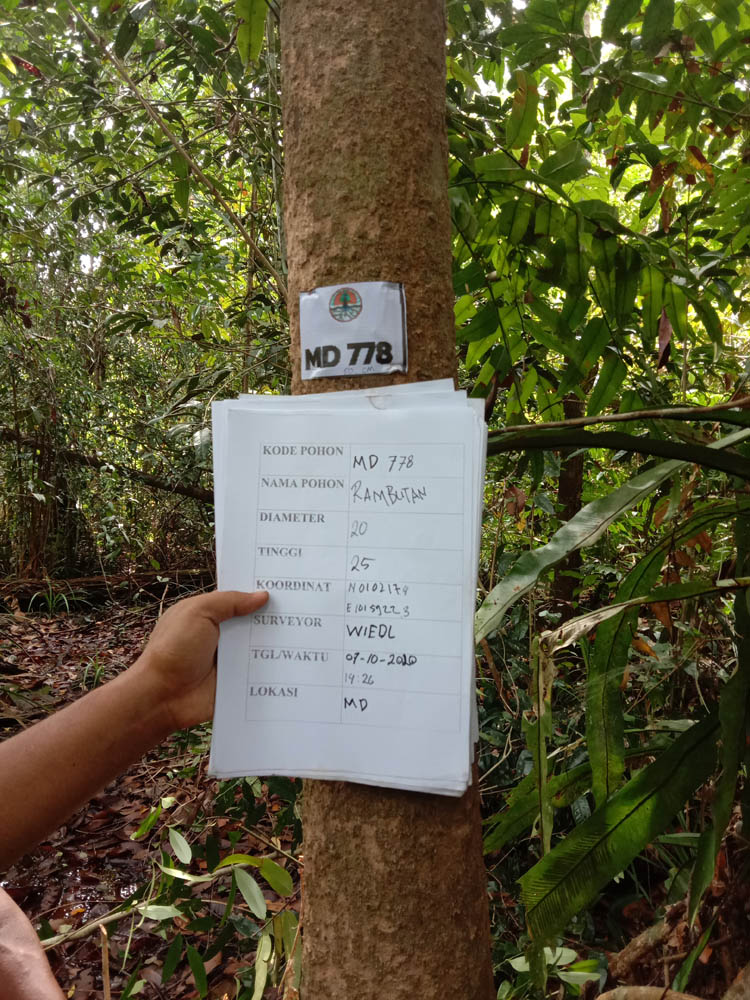 MD 778
KODE POHON MD 778
NAMA POHON RAMBUTAN
DIAMETER 20
TINGGI 25
KOORDINAT N0102174
E10159223
SURVEYOR WIEDL
TGL/WAKTU 07-10-2020
14:26
LOKASI MD